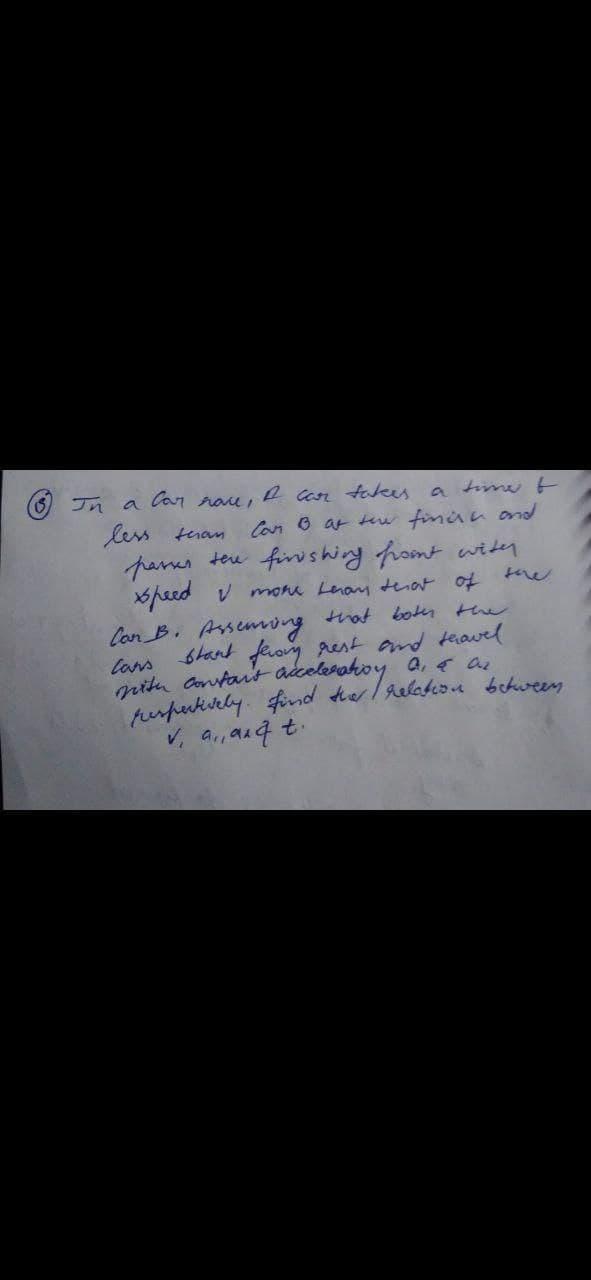 ③ In a Car race, A car takes a time t
less than Car B at the finish and
passes the finishing point with
speed v more than that of the
Car B. Assuming that both the
Cars start from rest and travel
with constant acceleration a₁ & a₂
respectively. find the relation between
v, a₁, a₂ & t.